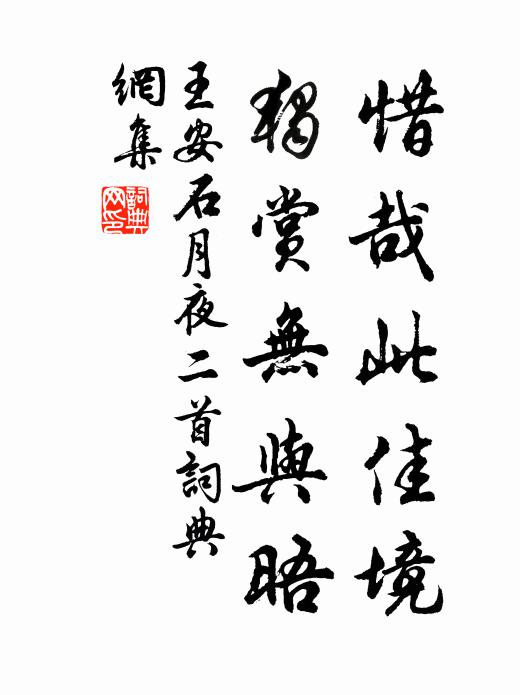 惜哉此佳境
獨賞無與晤
王安石月夜二首詞典
網集
詞典網印